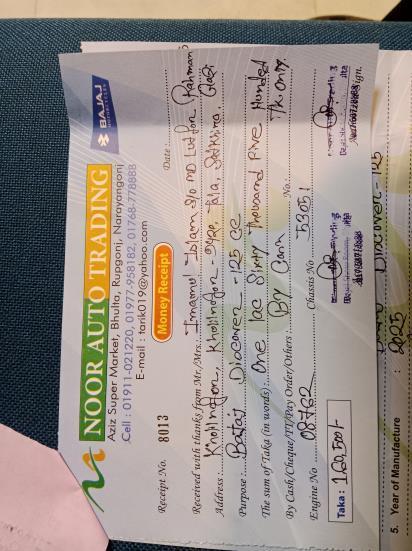 NOOR AUTO TRADING
BAJAJ
Aziz Super Market, Bhulta, Rupgonj, Narayangonj
Cell : 01911-021220, 01977-958182, 01768-778888
E-mail : tarik019@yahoo.com
Receipt No. 8013
Money Receipt
Date :
Received with thanks from Mr./Mrs.: Imamul Islam S/o MD Lutfor Rahman Gazi
Address : Tala, Satkhira.
Purpose : Bajaj Discover - 125 cc
The sum of Taka (in words) One lac Sixty Thousand Five Hundred Tk only
By Cash/Cheque/TT/Pay Order/Others By Cash No.:
Engine No 08762 Chassis No 53051
Taka : 160,500/-
Sign.
Discover - 125
5. Year of Manufacture : 2025